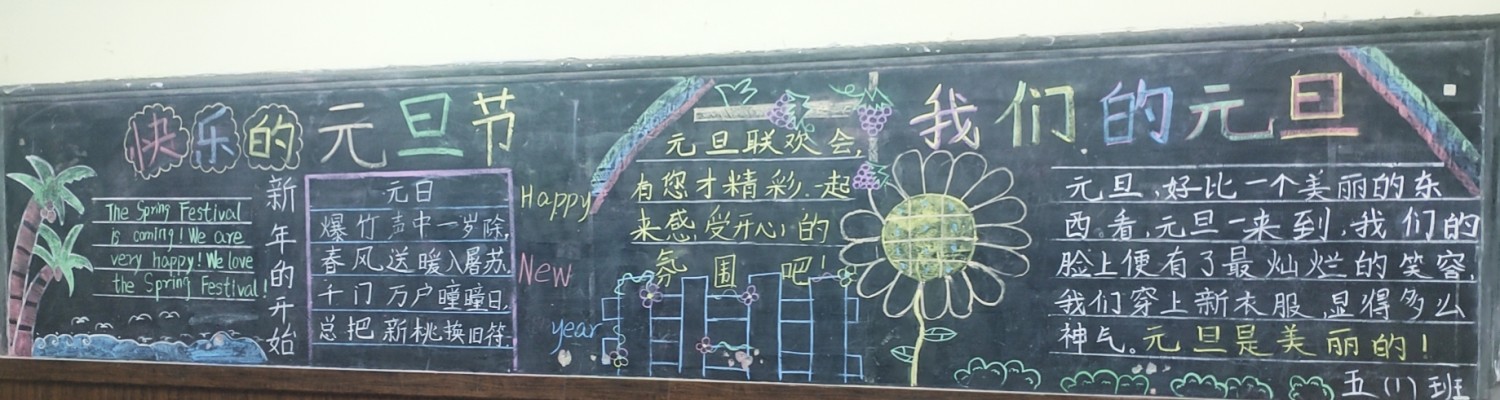 快乐的元旦节
The Spring Festival
is coming! We are
very happy! We love
the Spring Festival!
新年的开始
元日
爆竹声中一岁除,
春风送暖入屠苏.
千门万户曈曈日,
总把新桃换旧符.
Happy
New
year
元旦联欢会,
有您才精彩.一起
来感受开心的
氛围吧!
我们的元旦
元旦,好比一个美丽的东
西.看,元旦一来到,我们的
脸上便有了最灿烂的笑容,
我们穿上新衣服,显得多么
神气。元旦是美丽的!
五(1)班